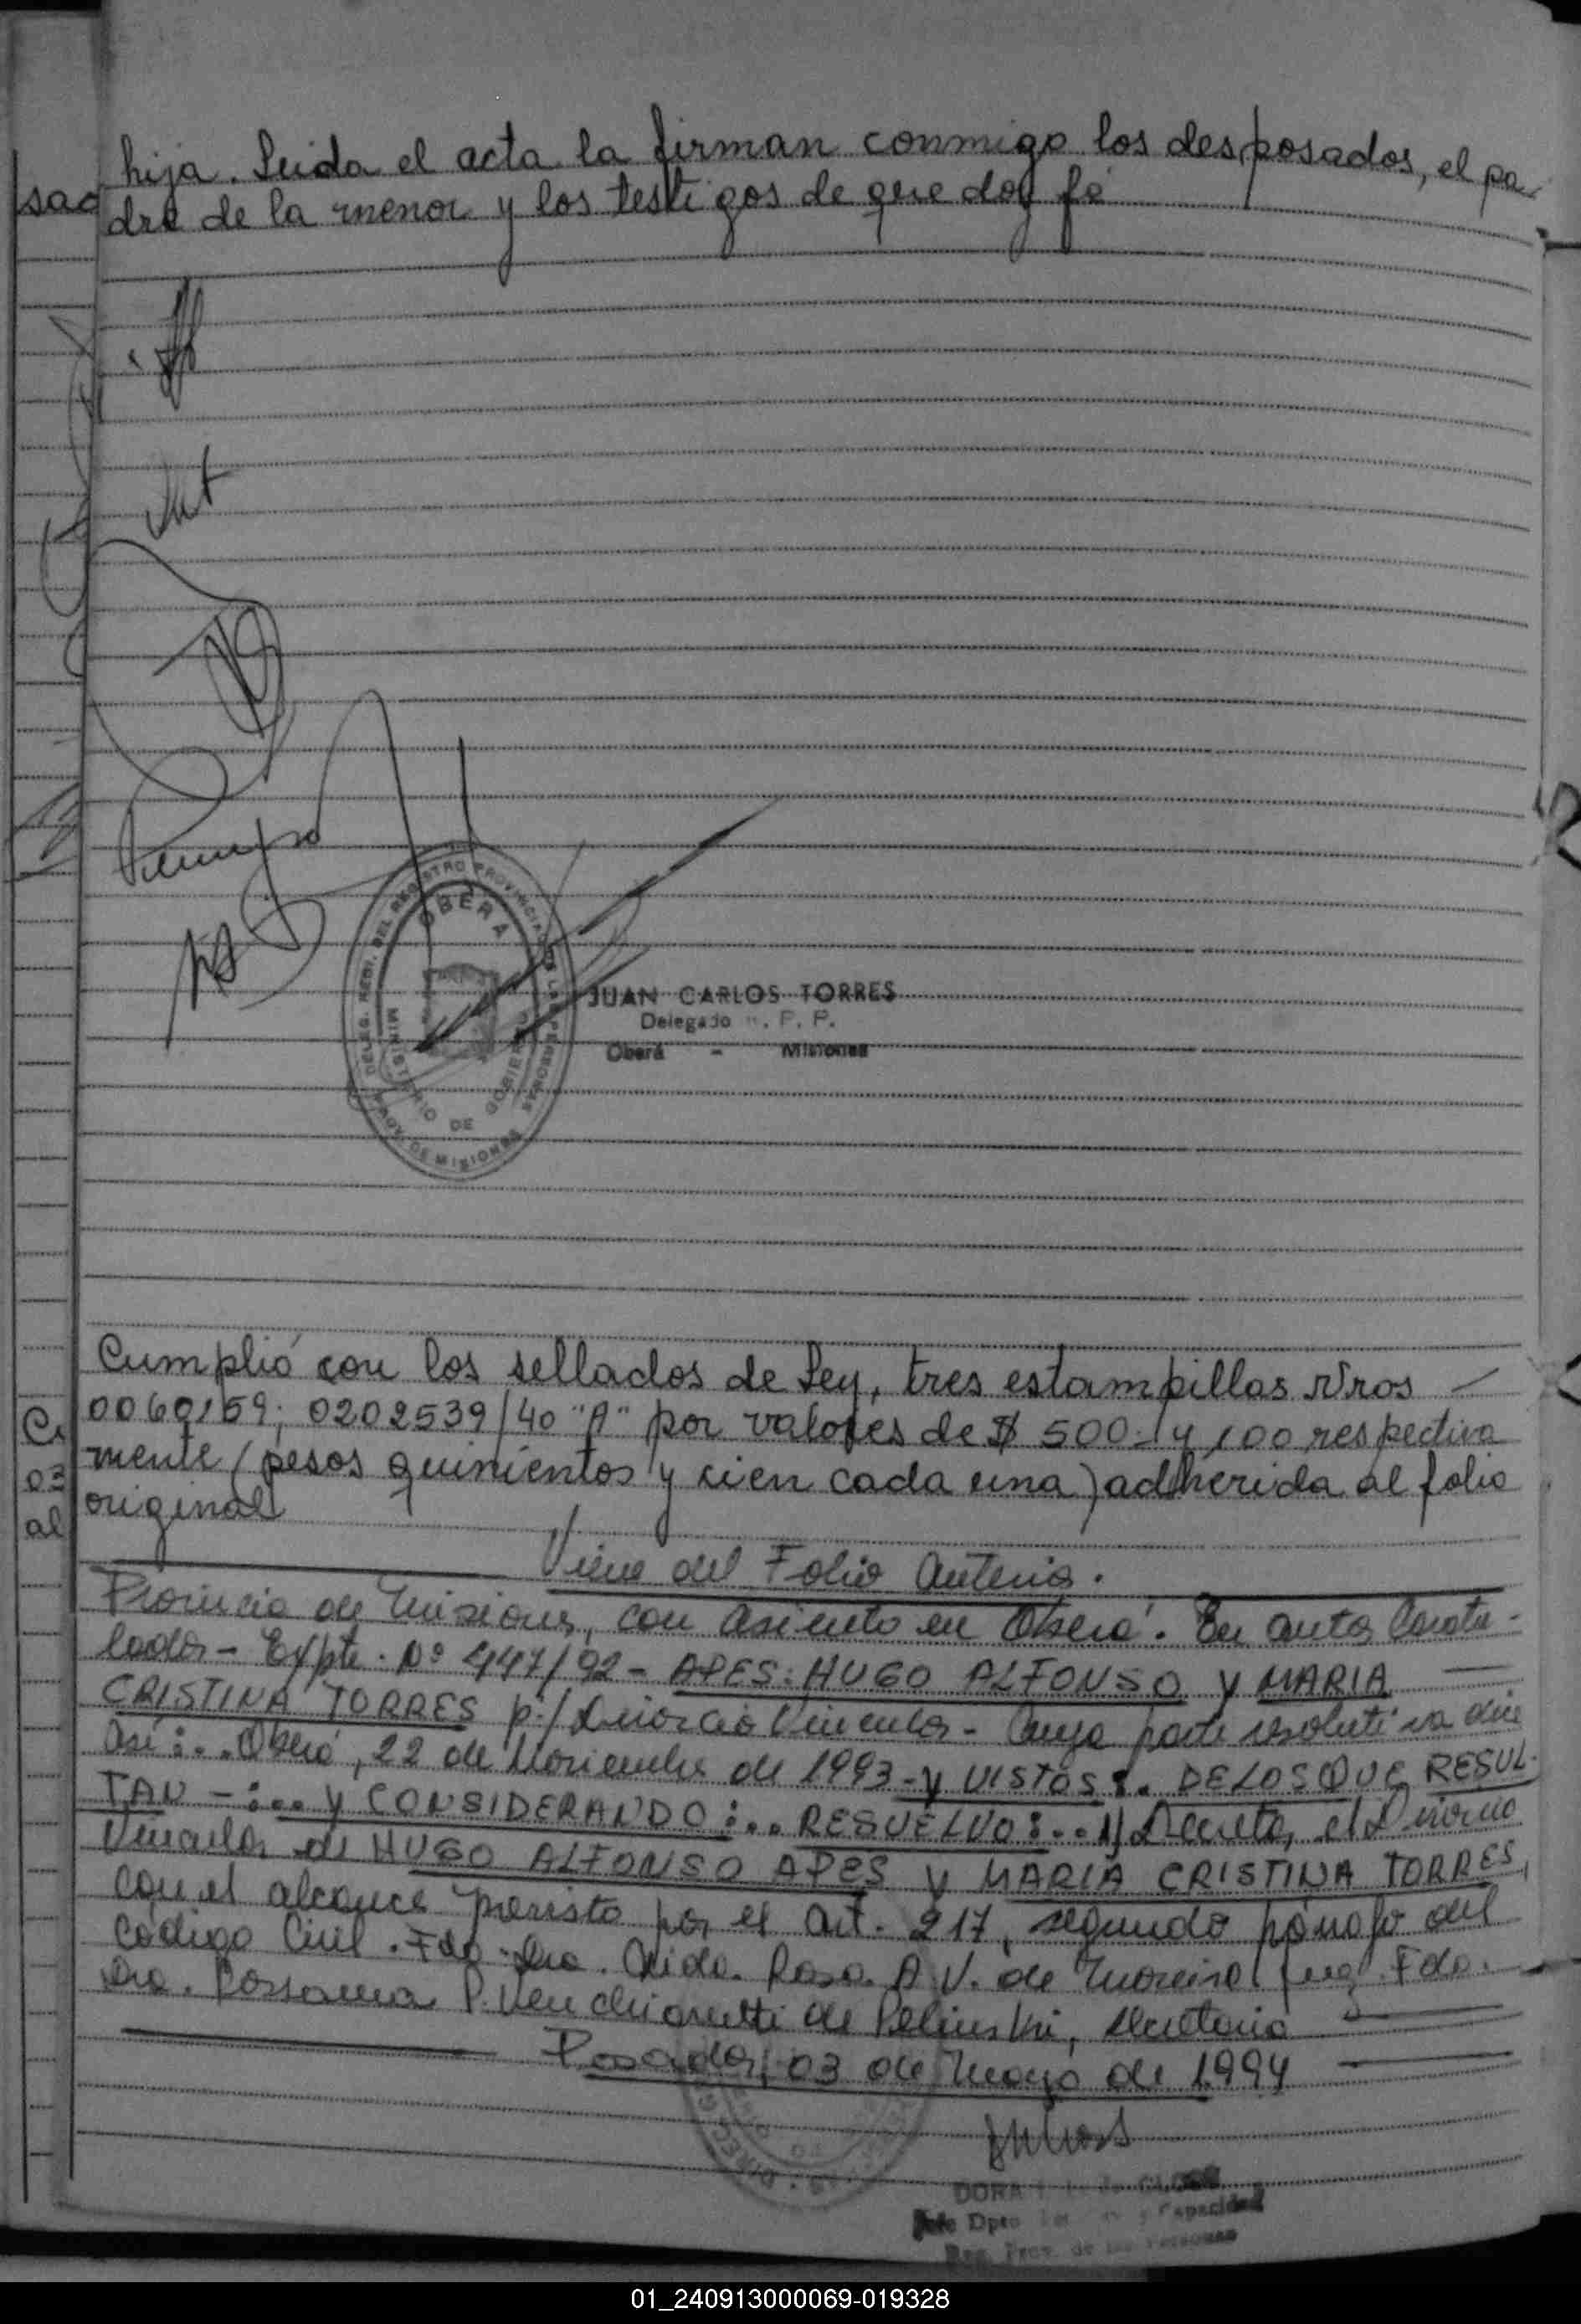 hija. Leida el acta la firman conmigo los desposados, el pa-
dre de la menor y los testigos de que doy fé
sao
DELEG. REGI. DEL REGISTRO PROVINCIAL DE LAS PERSONAS
OBERA
MINISTERIO DE GOBIERNO
PROV. DE MISIONES
JUAN CARLOS TORRES
Delegado R. P. P.
Oberá - Misiones
Cumplió con los sellados de Ley, tres estampillas Nros
0060159; 0202539/40 "A" por valores de $ 500.- y 100 respectiva
mente (pesos quinientos y cien cada una) adherida al folio
original
03
al
Viene del Folio Anterior.
Provincia de Misiones, con asiento en Oberá. En autos Caratu-
lados - Expte. Nº 447/92 - APES: HUGO ALFONSO Y MARIA
CRISTINA TORRES p./ Divorcio Vincular - Cuya parte resolutiva dice
Así:.. Oberá, 22 de Noviembre de 1993 - Y VISTOS:. DE LOS QUE RESUL-
TAN -:... Y CONSIDERANDO:... RESUELVO:... 1) Decretar, el Divorcio
Vincular de HUGO ALFONSO APES Y MARIA CRISTINA TORRES,
con el alcance previsto por el Art. 217, segundo párrafo del
Código Civil. Fdo. Dra. Rosa A. V. de Moreira Juez. Fdo.
Dra. Rossanna P. Venchiarutti de Pelinski, Secretaria
Posadas, 03 de Mayo de 1994
DORA
Jefe Dpto y Capacidad
Reg. Prov. de las Personas
01_240913000069-019328